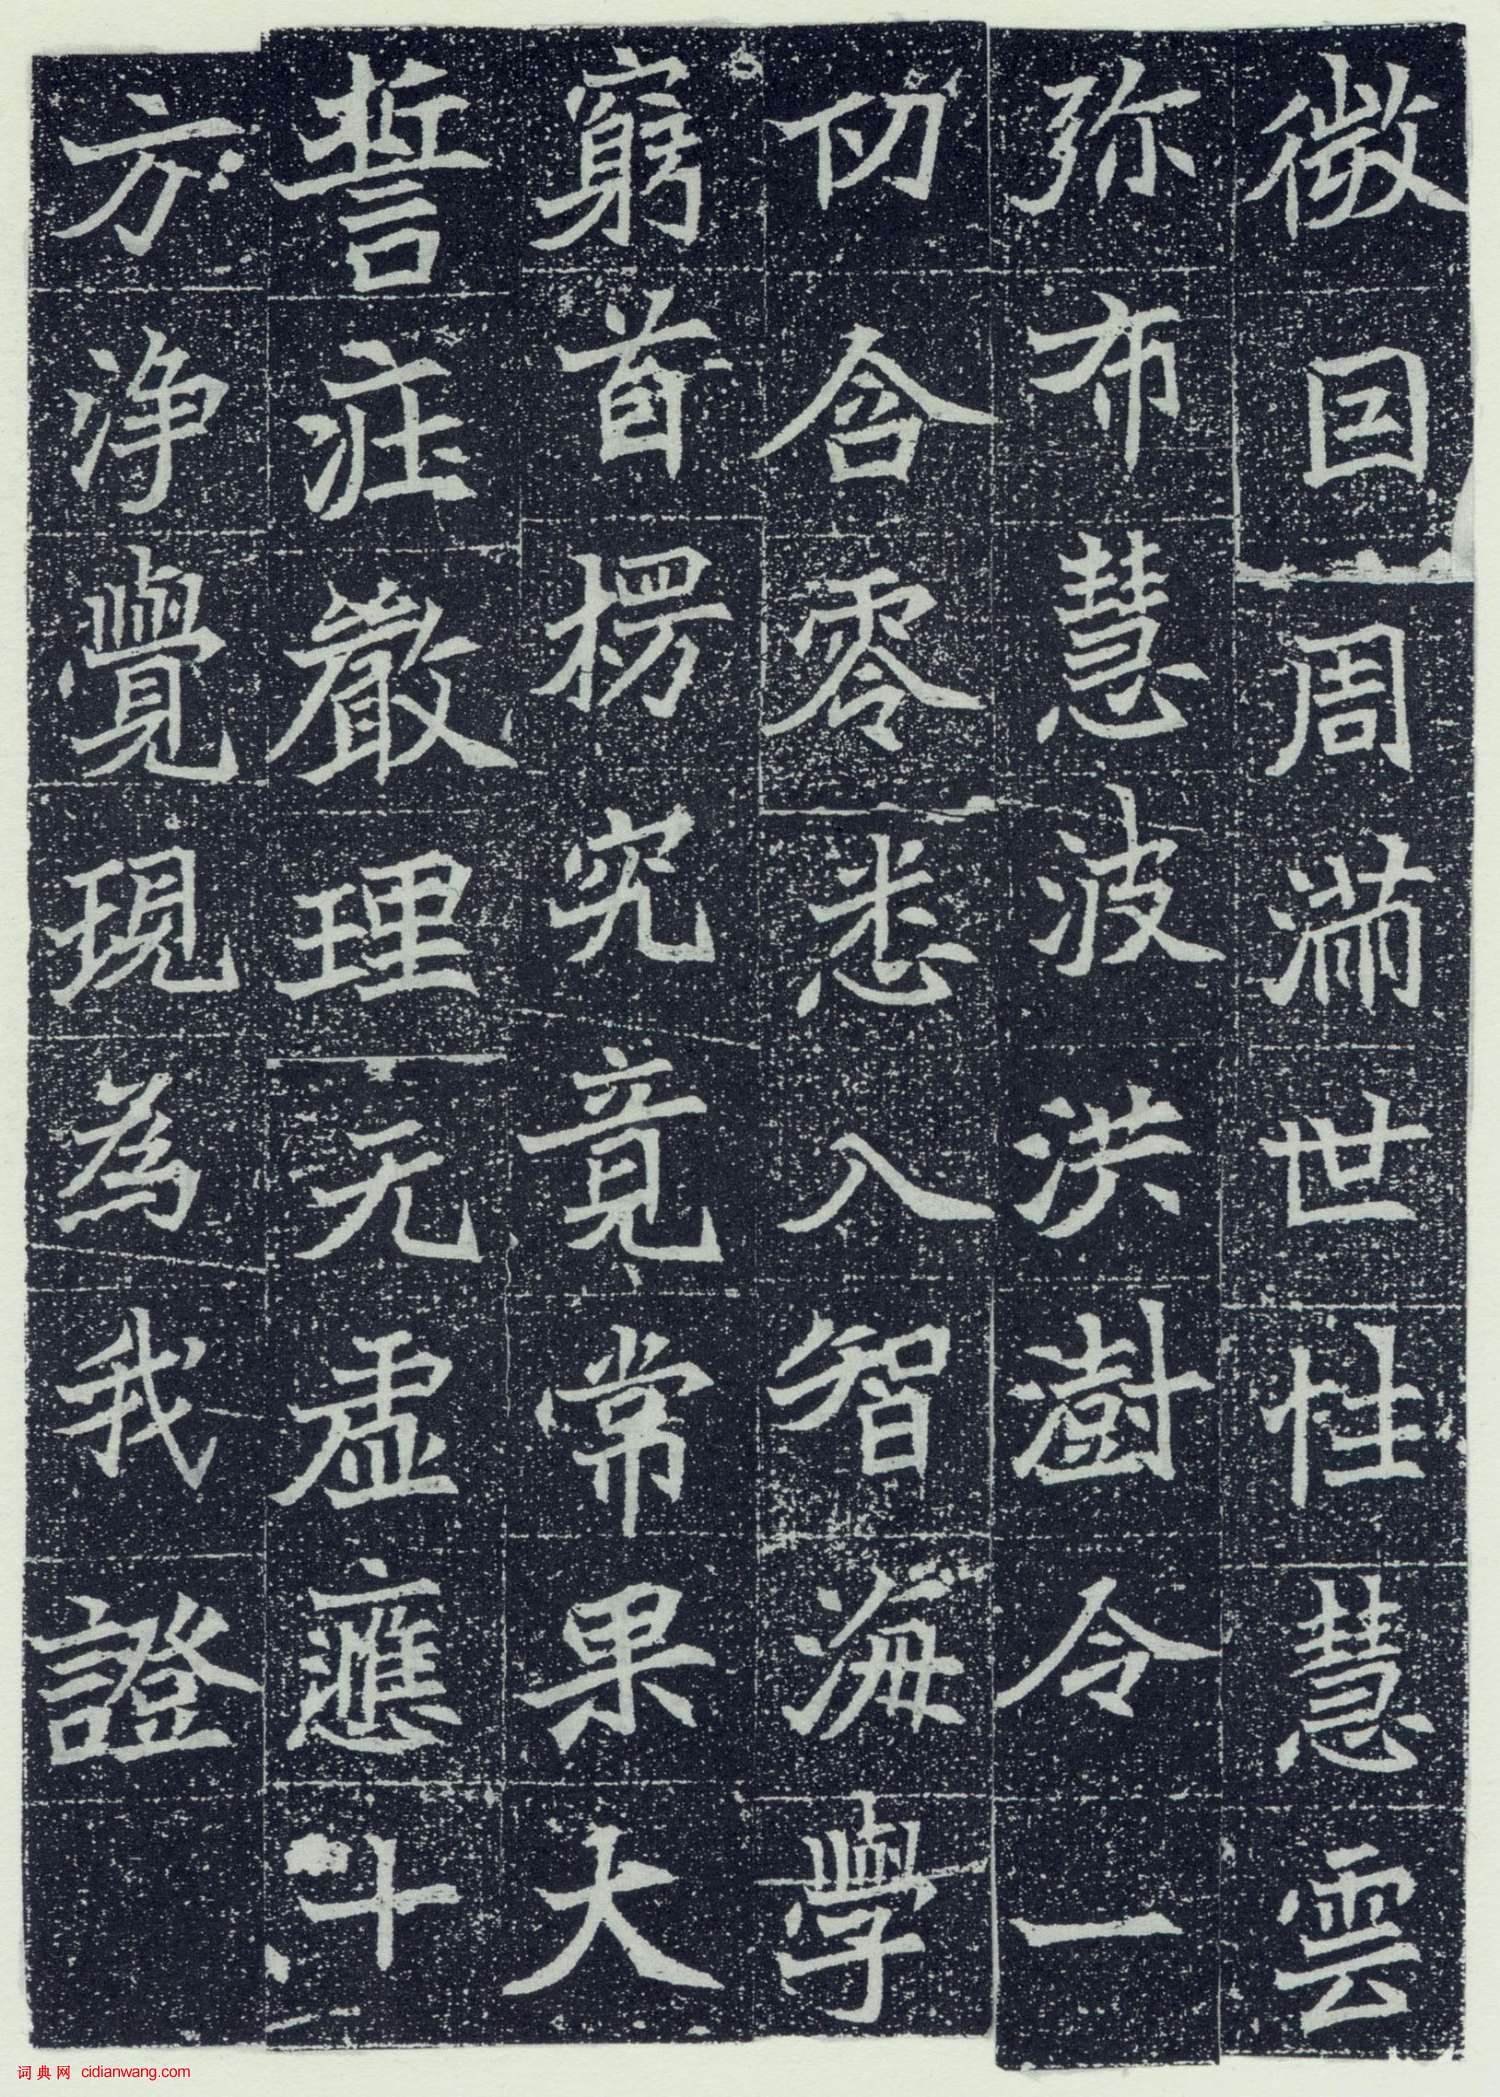 微因周滿世性慧雲
弥布慧波洪澍令一
切含零悉入智海學
窮首楞究竟常果大
誓庄嚴理无虛應十
方浄覺現為我證
词典网 cidianwang.com